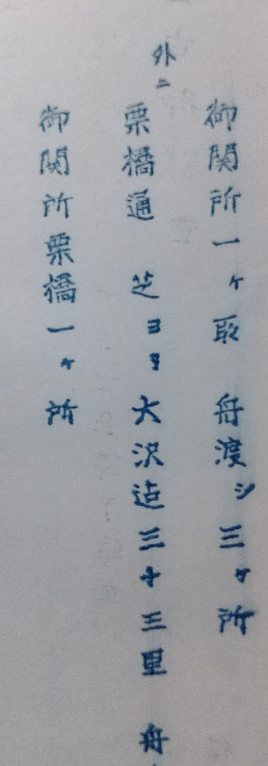 御関所一ヶ取　舟渡シ三ヶ所
外ニ
栗橋通　芝ヨリ大沢迠三十三里　舟
御関所栗橋一ヶ所